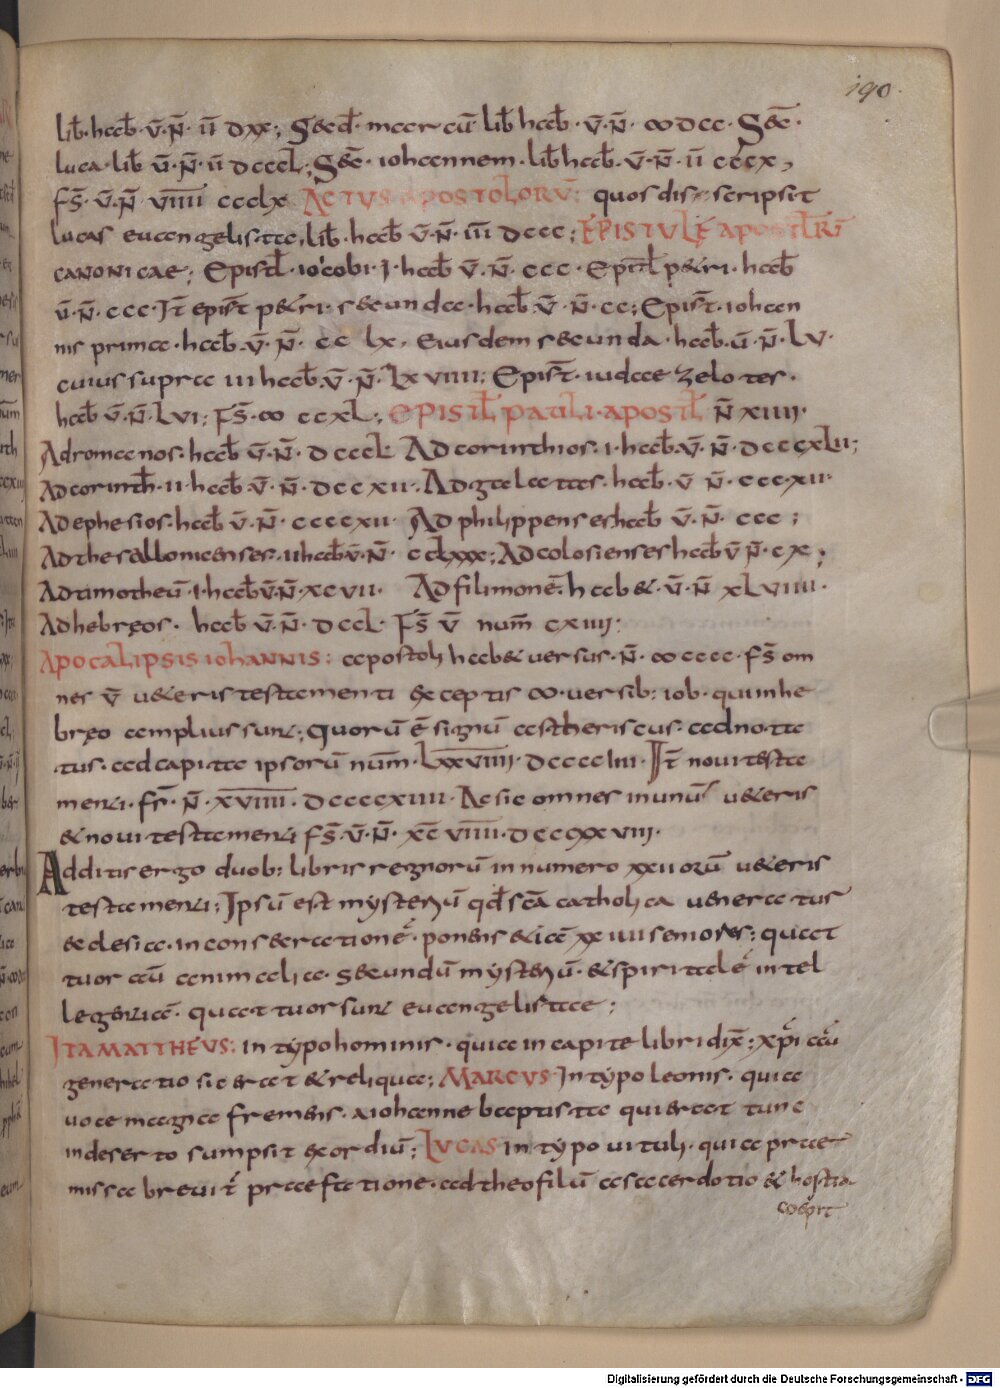 190.
lib̄. hab̄. v̄. N̄. īī dxx; Secd̄. marcū lib̄ hab̄. v̄. N̄. ∞ dcc. Sec̄.
luca. lib̄ ū. N̄. īī dcccl; Sec̄. iohannem. lib̄ hab̄. v̄. N̄. īī cccx,
fs̄. v̄. N̄ v̄īīīī ccclx ACTUS APOSTOLORŪ: quos dis scripsit
lucas euangelista, lib̄. hab̄ v̄. N̄. īīī dccc; EPISTULĘ APOSTL̄RŪ
CANONICAE; Epistl̄. iacobi. I. hab̄ v̄. N̄. ccc. Epistl̄ petri. hab̄
v̄. N̄. ccc. It̄ epist̄ petri. secunda. hab̄. v̄. N̄. cc; Epist̄. iohan
nis prima. hab̄. v̄. N̄. cc lx, Eiusdem secunda. hab̄. ū. N̄. LV.
cuius supra III hab̄. v̄. N̄. Lxviiii; Epist̄. iudae zelotes.
hab̄ v̄. N̄. LVI; Fs̄. ∞ ccxL; EPISTL̄ PAULI. APOSTL̄ N̄ XIIII.
Ad romanos. hab̄. v̄. N̄. dcccl. Ad corinthios. I. hab̄. v̄. N̄. dcccxLii;
Ad corinth̄. II. hab̄. v̄. N̄. dccxii. Ad galaatas. hab̄. v̄ N̄. cccxii.
Ad ephesios. hab̄ v̄. N̄. ccccxii. Ad philippenses hab̄ v̄. N̄. ccc;
Ad thessallonicenses. II hab̄. v̄. N̄. cclxxx; Ad colosienses hab̄ v̄ N̄. cx;
Ad timotheū. I. hab̄ v̄. N̄. xcvii. Ad filimonē. habet. v̄. N̄ xLviiii.
Ad hebręos. hab̄ v̄. N̄. dccl. Fs̄ v̄ num̄ cxiiii:
APOCALIPSIS IOHANNIS: apostoli habet uersus. N̄. ∞ cccc. fs̄ om
nes v̄ ueteris testamenti exceptis ∞. uersib; iob. qui in he
bręo amplius sunt; quorū ē signū astheriscus. adnota
tus. ad capita ipsorū num̄. Lxxviiii. dccccliii. It̄ noui testa
menti. fr̄. N̄. xviiii. dccccxiiii. Ac sic omnes in unū ueteris
et noui testamenti fs̄. v̄. N̄. xc̄ viiii. dcccxxxviii.
Additis ergo duob; libris regnorū in numero xxii orū ueteris
testamenti; Ipsū est mysteriū qd̄ scā catholica ueneratur
eclesia. in consecrationē. ponens etiā xxiiii seniores; quat
tuor aū animalia. secundū mysteriū. et spiritalē intel
legentiā. quattuor sunt euangelistae;
ITA MATTHEUS: in typo hominis. quia in capite libri dix̄: xp̄i aū
generatio sic erat et reliqua; MARCUS In typo leonis. quia
uoce magna fremens. a iohanne baptista qui erat tunc
in deserto sumpsit exordiū; LUCAS In typo uituli. quia prae
missa breuit̄ praefatione. ad theofilū a sacerdotio et hostia
coepit
Digitalisierung gefördert durch die Deutsche Forschungsgemeinschaft - DFG